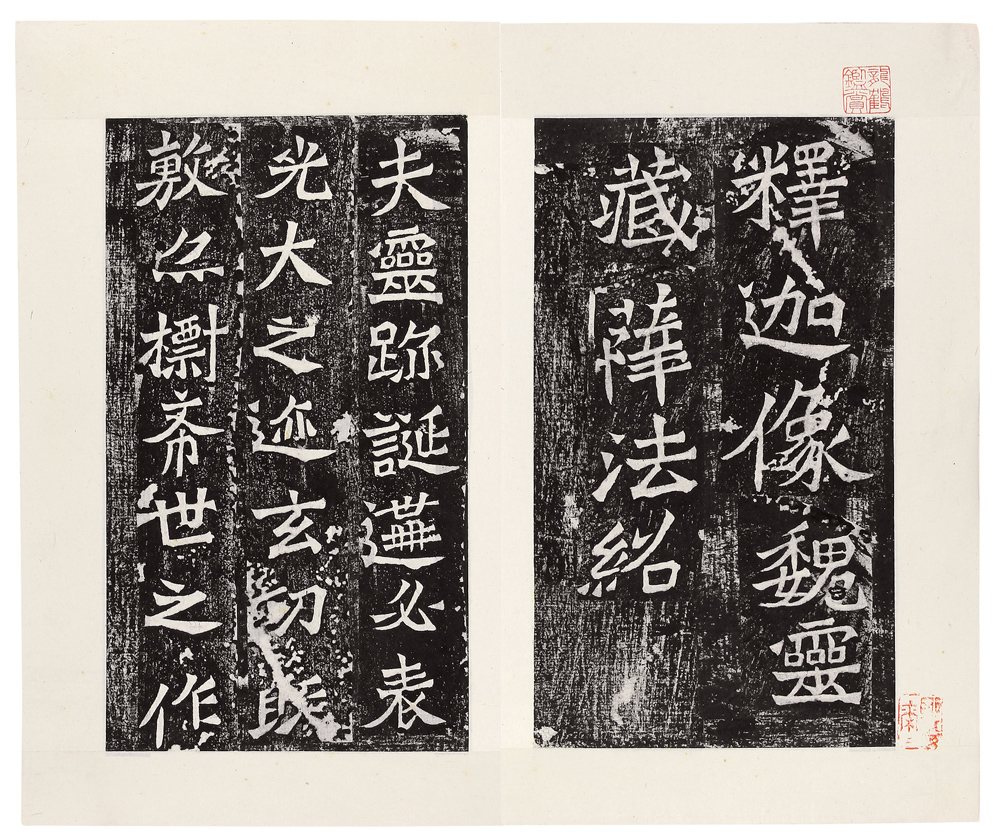 龍鶴
鑑賞
釋迦像魏靈
藏薛法紹
夫靈跡誕遘必表
光大之迹玄功既
敷亦摽希世之作